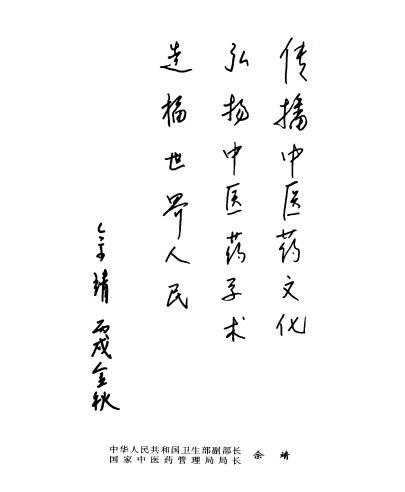 传播中医药文化
弘扬中医药学术
造福世界人民
佘靖 丙戌金秋
中华人民共和国卫生部副部长
国家中医药管理局局长
佘靖